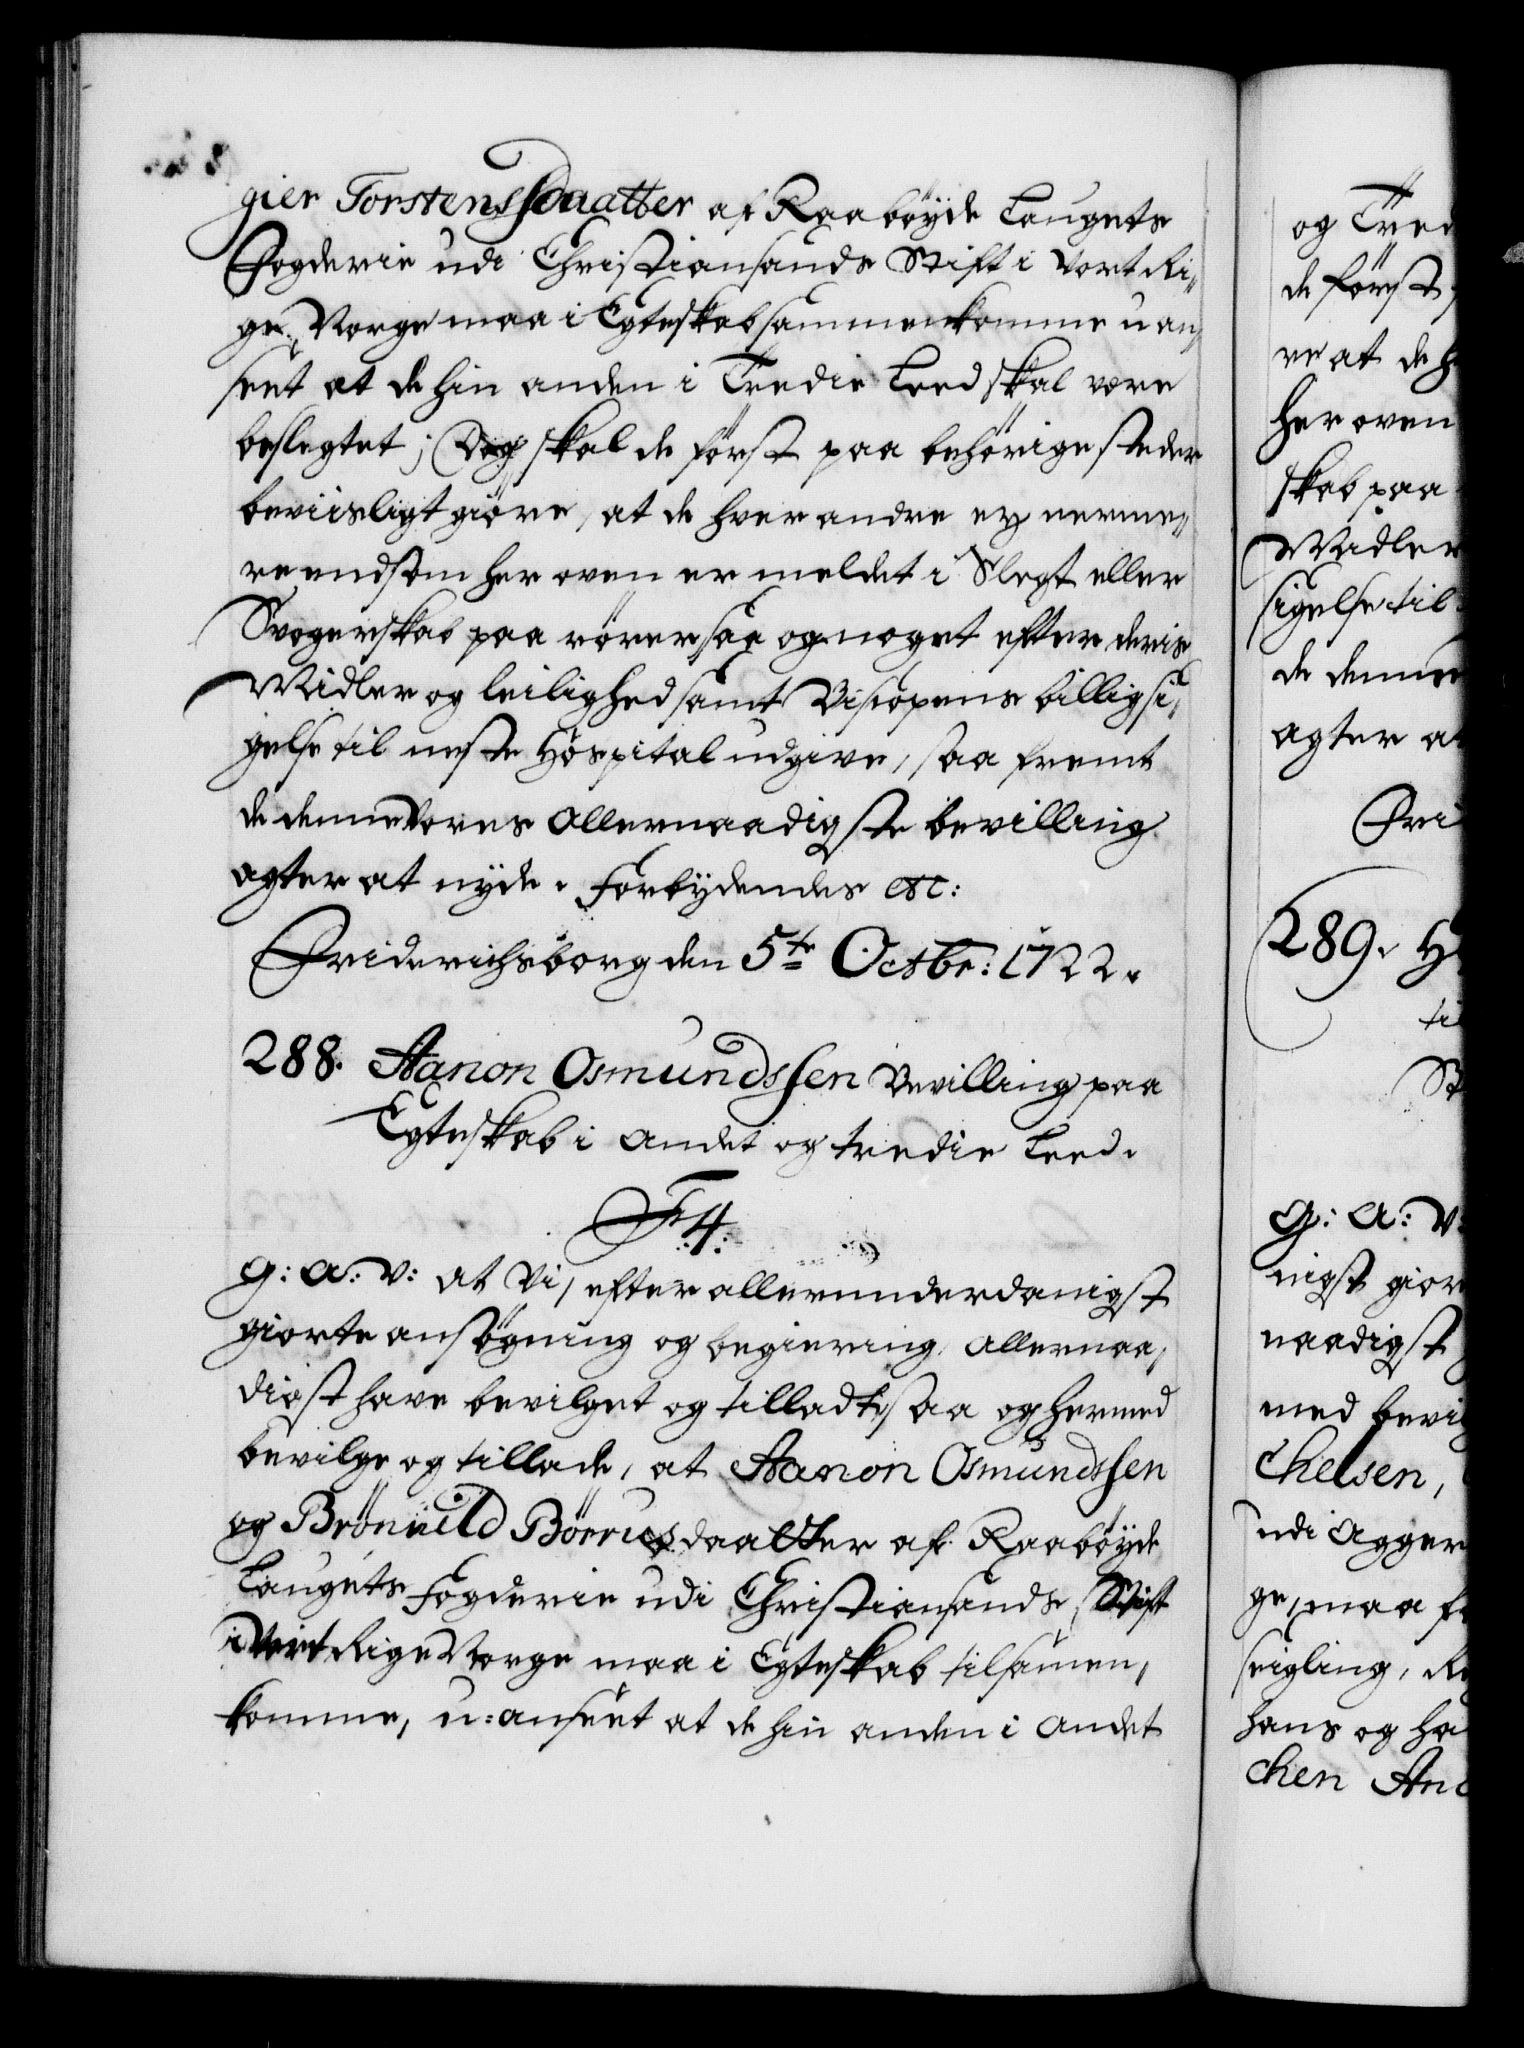 gier Torstensdaatter af Raabøyde Laugets
Fogderie udi Christiansands Stift i Vort Ri„
ge Norge maa i Egteskab sammenkomme uan„
seet at de hin anden i Tredie Leed skal være
beslegtet; Dog skal de først paa behørige steder
beviisligt giøre, at de hver andre ey nerme„
re end som her oven er meldet i Slegt eller
Svogerskab paarører saa og noget efter deris
Midler og leilighed samt Biscopens billig si„
gelse til neste Hospital udgive, saa fremt
de denne Vores Allernaadigste bevilling
agter at nyde. Forbydendes etc:
Friderichsborg den 5te Octbr: 1722.
288. Aanon Osmundssen Bevilling paa
Egteskab i Andet og tredie Leed.
F 4.
G: A: V: At Vi, efter allerunderdanigst
giorte ansøgning og begiering, Allernaa„
digst have bevilget og tilladt, saa og hermed
bevilge og tillade, at Aanon Osmundssen
og Brønild Børrusdaatter af Raabøyde
Laugets Fogderie udi Christiansands Stift
i Vort Rige Norge maa i Egteskab tilsamen„
komme, u:anseet at de hin anden i Andet
og Tred
de først
re at de h
her oven
skab paa
Midler
sigelse til
de denne
agter at
Fri
289. H
til
St
G: A: V:
nigst gior
naadigst
med bevil
chelsen,
udi Agger
ge, maa f
seigling,
hans og ha
chen An